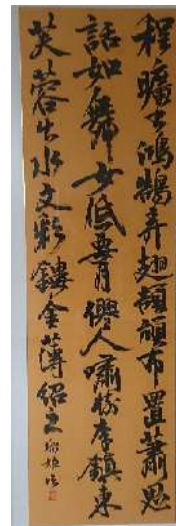 程曠鴻鵠弄翅頡頏布置蕭思
話如舞女低腰僊人嘯樹李鎮東
芙蓉出水文彩鏤金薄紹之